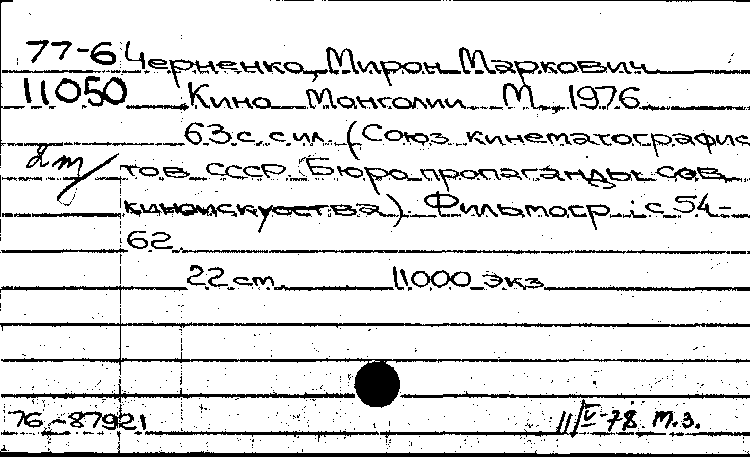 77-6 Черненко, Мирон Маркович
11050 Кино Монголии М, 1976
63 с. с ил. (Союз кинематографис
тов СССР. Бюро пропаганды сов.
киноискусства). Фильмогр.: с 54-
62.
22 см. 11000 экз
76-87921 11/V-78 т.з.